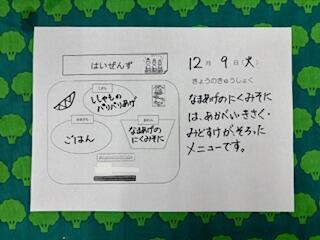 はいぜんず
ししゃもの
パリパリあげ
ごはん
なまあげの
にくみそに
12月9日(火)
きょうのきゅうしょく
なまあげのにくみそに
は、あかべい・きさく・
みどすけが、そろった
メニューです。